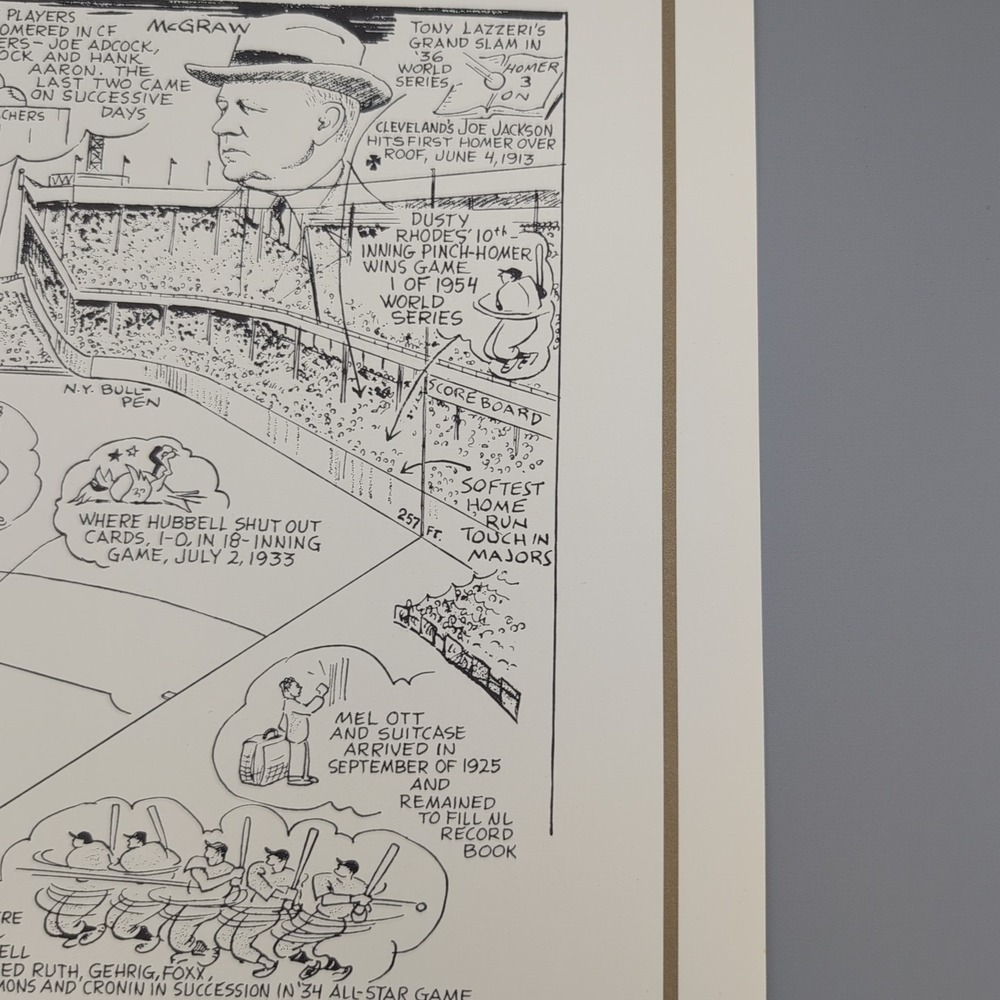 PLAYERS
OMERED IN CF
ERS- JOE ADCOCK,
OCK AND HANK
AARON. THE
LAST TWO CAME
ON SUCCESSIVE
DAYS
CHERS
McGRAW
TONY LAZZERI'S
GRAND SLAM IN
'36
WORLD
SERIES
HOMER
3
ON
CLEVELAND'S JOE JACKSON
HITS FIRST HOMER OVER
ROOF, JUNE 4, 1913
DUSTY
RHODES' 10th-
INNING PINCH-HOMER
WINS GAME
1 OF 1954
WORLD
SERIES
SCOREBOARD
N.Y. BULL-
PEN
SOFTEST
HOME
RUN
TOUCH IN
MAJORS
257 FT.
WHERE HUBBELL SHUT OUT
CARDS, 1-0, IN 18-INNING
GAME, JULY 2, 1933
MEL OTT
AND SUITCASE
ARRIVED IN
SEPTEMBER OF 1925
AND
REMAINED
TO FILL NL
RECORD
BOOK
RE
ELL
ED RUTH, GEHRIG, FOXX,
MONS AND CRONIN IN SUCCESSION IN '34 ALL-STAR GAME